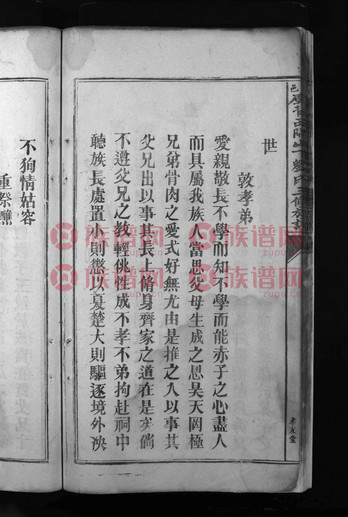 世
敦孝弟
愛親敬長不學而知不學而能赤子之心盡人
而具屬我族人當思父母生成之恩昊天罔極
兄弟骨肉之愛式好無尤由是推之入以事其
父兄出以事其長上脩身齊家之道在是矣倘
不遵父兄之教輕佻性成不孝不弟拘赴祠中
聽族長處置小則懲以夏楚大則驅逐境外決
不狥情姑容
重祭醮
孝友堂
族谱网